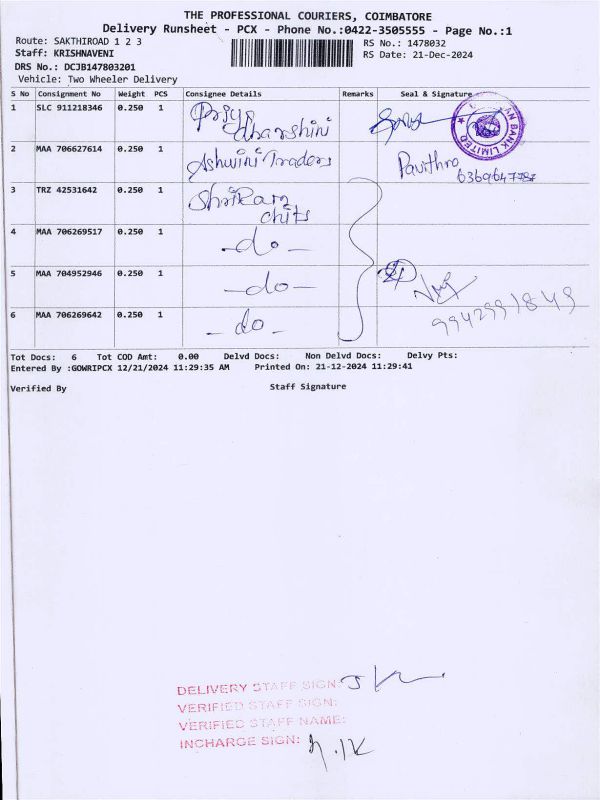 THE PROFESSIONAL COURIERS, COIMBATORE
Delivery Runsheet - PCX - Phone No.:0422-3505555 - Page No.:1
Route: SAKTHIROAD 1 2 3
RS No.: 1478032
Staff: KRISHNAVENI
RS Date: 21-Dec-2024
DRS No.: DCJB147803201
Vehicle: Two Wheeler Delivery
S No Consignment No Weight PCS Consignee Details Remarks Seal & Signature
1 SLC 911218346 0.250 1 Priya dharshini
2 MAA 706627614 0.250 1 Ashwini Traders Pavithra
3 TRZ 42531642 0.250 1 Shri Ram chits
4 MAA 706269517 0.250 1 -do-
5 MAA 704952946 0.250 1 -do-
6 MAA 706269642 0.250 1 -do-
BANK LIMITED
Tot Docs: 6 Tot COD Amt: 0.00 Delvd Docs: Non Delvd Docs: Delvy Pts:
Entered By :GOWRIPCX 12/21/2024 11:29:35 AM Printed On: 21-12-2024 11:29:41
Verified By Staff Signature
DELIVERY STAFF SIGN:
VERIFIED STAFF SIGN:
VERIFIED STAFF NAME:
INCHARGE SIGN: